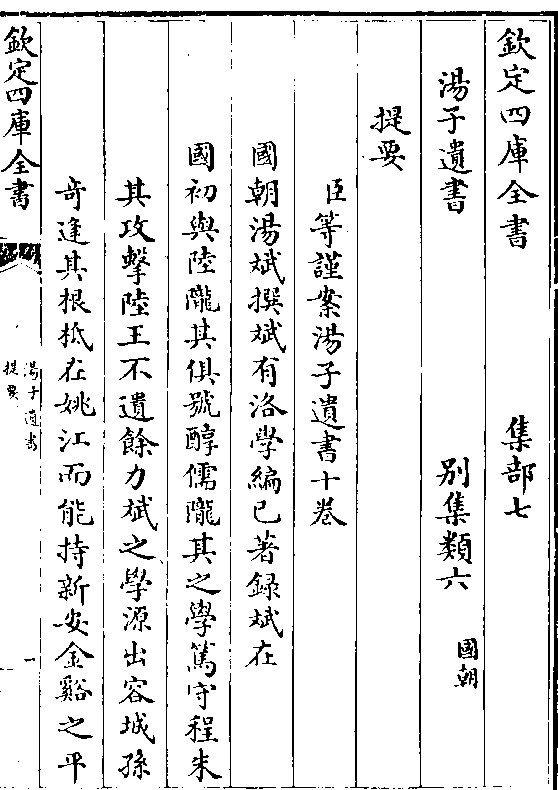 欽定四庫全書　集部七
湯子遺書　別集類六　國朝
提要
臣等謹案湯子遺書十卷
國朝湯斌撰斌有洛學編已著録斌在
國初與陸隴其俱號醇儒隴其之學篤守程朱
其攻擊陸王不遺餘力斌之學源出容城孫
奇逢其根柢在姚江而能持新安金谿之平
欽定四庫全書
湯子遺書
提要
一